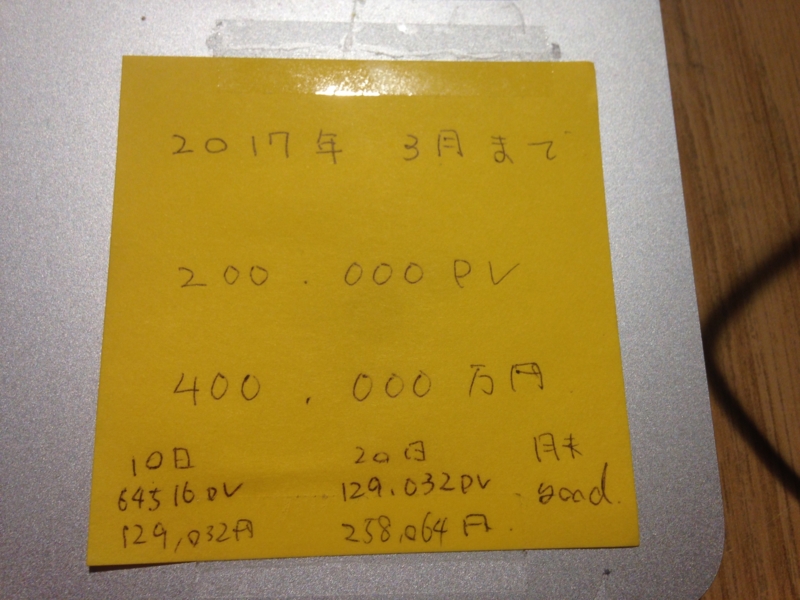 2017年 3月まで
200.000PV
400,000万円
10日 20日 月末
64516PV 129.032PV good.
129,032円 258,064円.